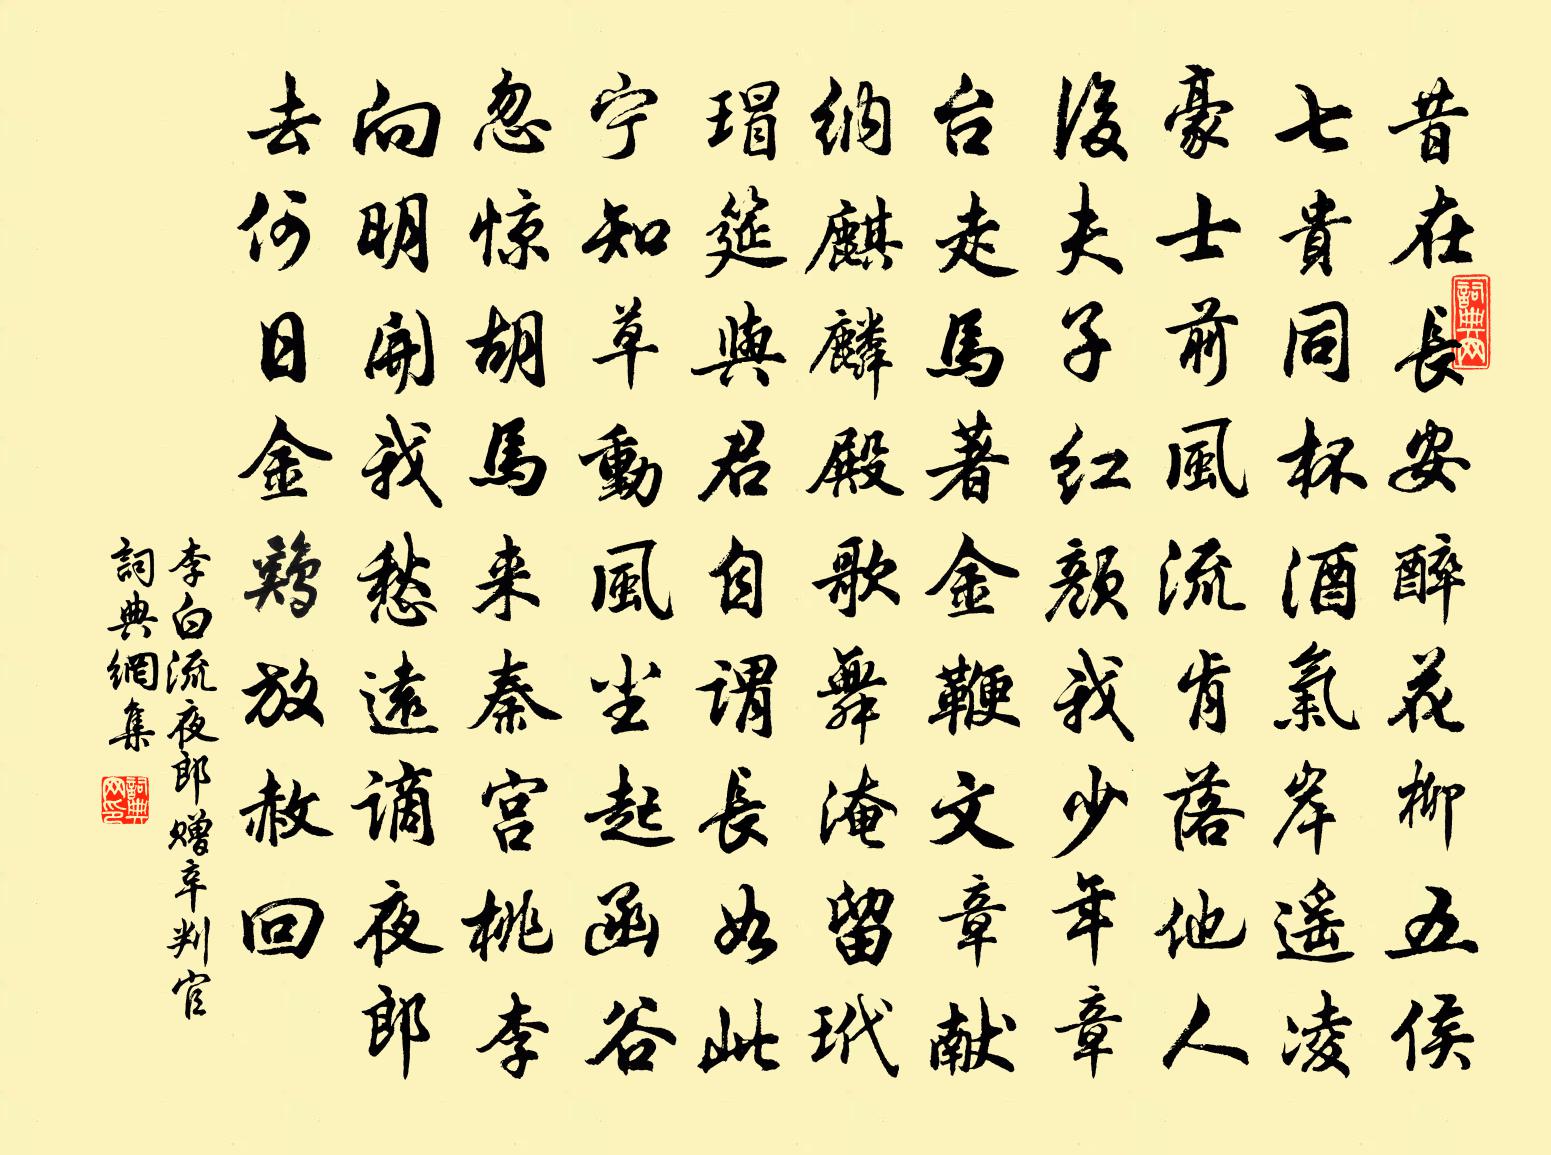 昔在長安醉花柳五侯
七貴同杯酒氣岸遙凌
豪士前風流肯落他人
後夫子红顔我少年章
台走馬著金鞭文章献
纳麒麟殿歌舞淹留玳
瑁筵與君自谓長如此
宁知草動風尘起函谷
忽惊胡馬来秦宫桃李
向明開我愁遠谪夜郎
去何日金鷄放赦回
李白流夜郎赠辛判官
詞典網集
詞典网
詞典网印